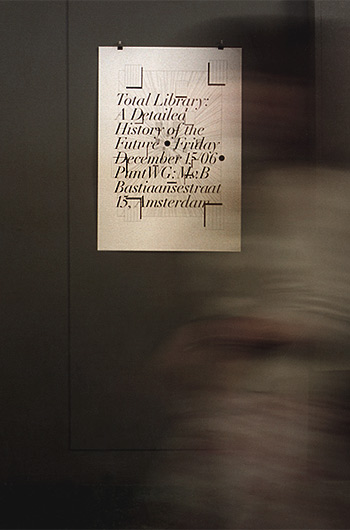 Total Library:
A Detailed
History of the
Future • Friday
December 15 06 •
PuntWG: M.v.B
Bastiaansestraat
15, Amsterdam